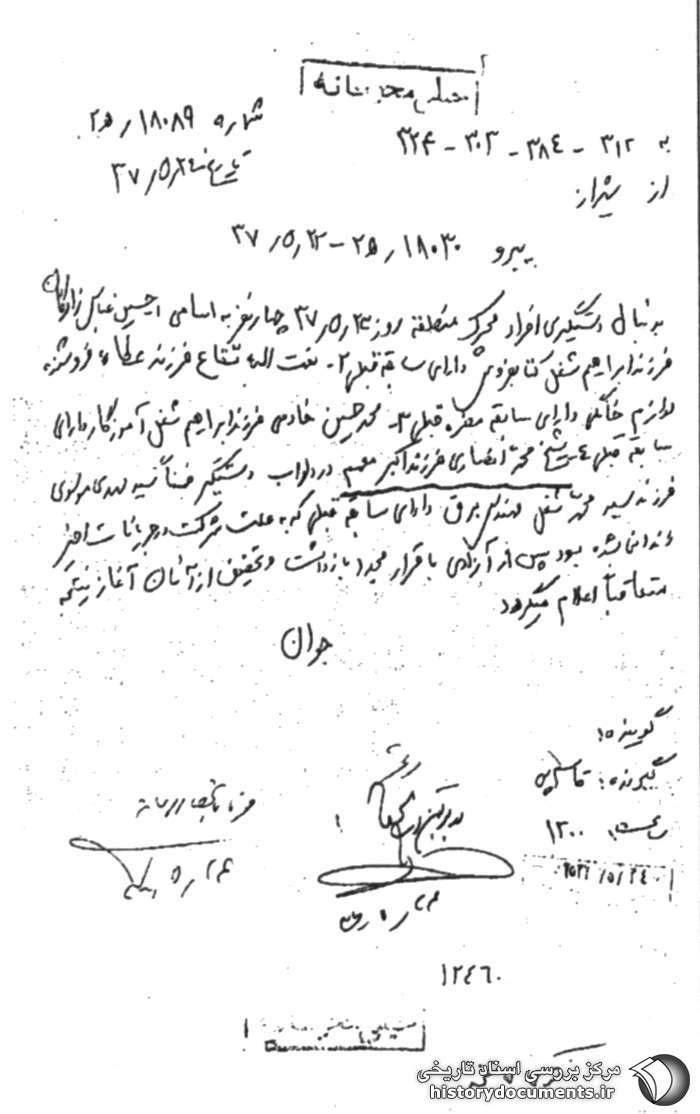 خیلی محرمانه
شماره ۱۸۰۸۹ / ۲۵ﻫ
به ۳۱۲ - ۳۸٤ - ۳۰۲ - ۳۲۴
تاریخ ۳۷٫۵٫۲٤
از شیراز
پیرو ۱۸۰۳۰ / ۲۵ﻫ - ۳۷٫۵٫۲۳
بدنبال دستگیری افراد محرک منطقه روز ۳۷٫۵٫۲۳ چهار نفر به اسامی ۱ـ حسین عباس زادگان
فرزند ابراهیم شغل کتابفروش دارای سابقه قبلی ۲- نعمت اله فرزند عطاء فروشنده
لوازم خانگی دارای سابقه مضره قبلی ۳- محمد حسین خادمی فرزند ابراهیم شغل آموزگار دارای
سابقه قبلی ٤- شیخ محمد انصاری فرزند اکبر معمم در داراب دستگیر ضمناً سید مهدی
فرزند سید محمد شغل مهندس برق دارای سابقه قبلی که به علت شرکت در جریانات اخیر
زندانی شده بود پس از آزادی با قرار مجدد بازداشت و تحقیق از آنان آغاز نتیجه
متعاقباً اعلام میگردد
جوان
گوینده:
گیرنده:
ساعت: ۱۲۰۰
۲۵۳۷/۵/۲٤
۱۲٤٦۰
خیلی محرمانه
مرکز بررسی اسناد تاریخی
historydocuments.ir